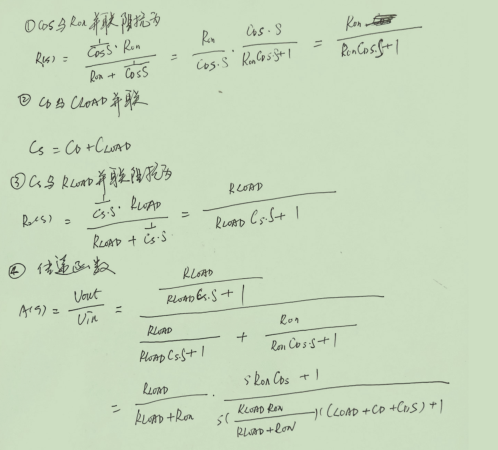 ① CDS与Ron并联阻抗为
R1(s) = \frac{\frac{1}{CDS·S} · Ron}{Ron + \frac{1}{CDS·S}} = \frac{Ron}{CDS·S} · \frac{CDS·S}{RonCDS·S+1} = \frac{Ron}{RonCDS·S+1}
② CD与CLOAD并联
CS = CD + CLOAD
③ CS与RLOAD并联阻抗为
R2(s) = \frac{\frac{1}{CS·S} · RLOAD}{RLOAD + \frac{1}{CS·S}} = \frac{RLOAD}{RLOAD CS·S+1}
④ 传递函数
A(s) = \frac{Vout}{Vin} = \frac{\frac{RLOAD}{RLOADCS·S+1}}{\frac{RLOAD}{RLOAD CS·S+1} + \frac{Ron}{RonCDS·S+1}}
= \frac{RLOAD}{RLOAD+Ron} · \frac{SRonCDS+1}{S(\frac{RLOADRON}{RLOAD+RON})(CLOAD+CD+CDS)+1}